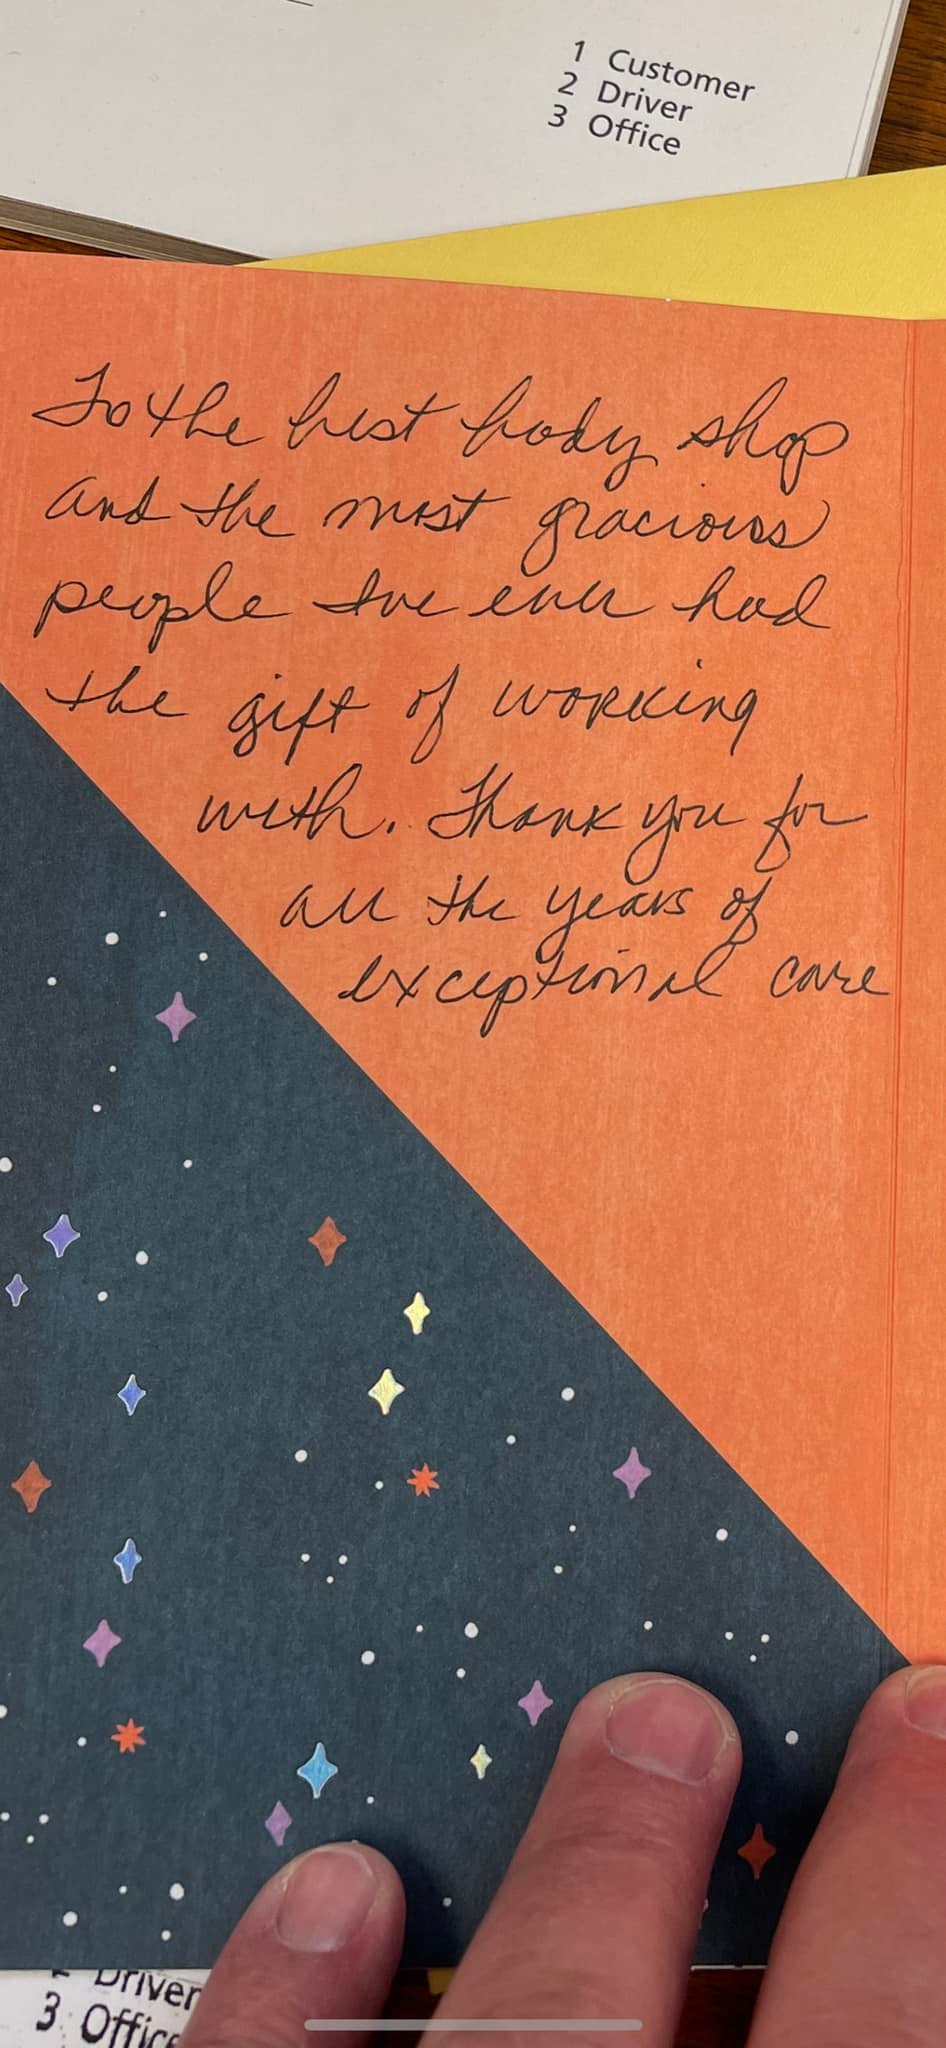 1 Customer
2 Driver
3 Office
To the best body shop
and the most gracious
people I've ever had
the gift of working
with. Thank you for
all the years of
exceptional care
Driver
3 Office